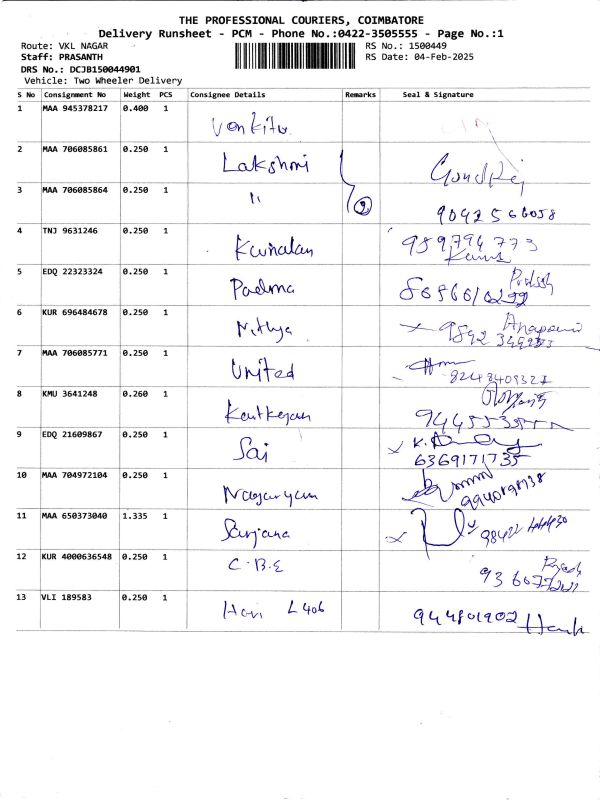 THE PROFESSIONAL COURIERS, COIMBATORE
Delivery Runsheet - PCM - Phone No.:0422-3505555 - Page No.:1
Route: VKL NAGAR RS No.: 1500449
Staff: PRASANTH RS Date: 04-Feb-2025
DRS No.: DCJB150044901
Vehicle: Two Wheeler Delivery
S No Consignment No Weight PCS Consignee Details Remarks Seal & Signature
1 MAA 945378217 0.400 1
2 MAA 706085861 0.250 1 Lakshmi
3 MAA 706085864 0.250 1 " 2
9042566058
4 TNJ 9631246 0.250 1 989794773
5 EDQ 22323324 0.250 1 Padma
6 KUR 696484678 0.250 1 Nithya
7 MAA 706085771 0.250 1 United
8 KMU 3641248 0.260 1
9 EDQ 21609867 0.250 1 Sai
6369171735
10 MAA 704972104 0.250 1
11 MAA 650373040 1.335 1 Sanjana
12 KUR 4000636548 0.250 1 C.B.E
13 VLI 189583 0.250 1 Hari L 406 944801902